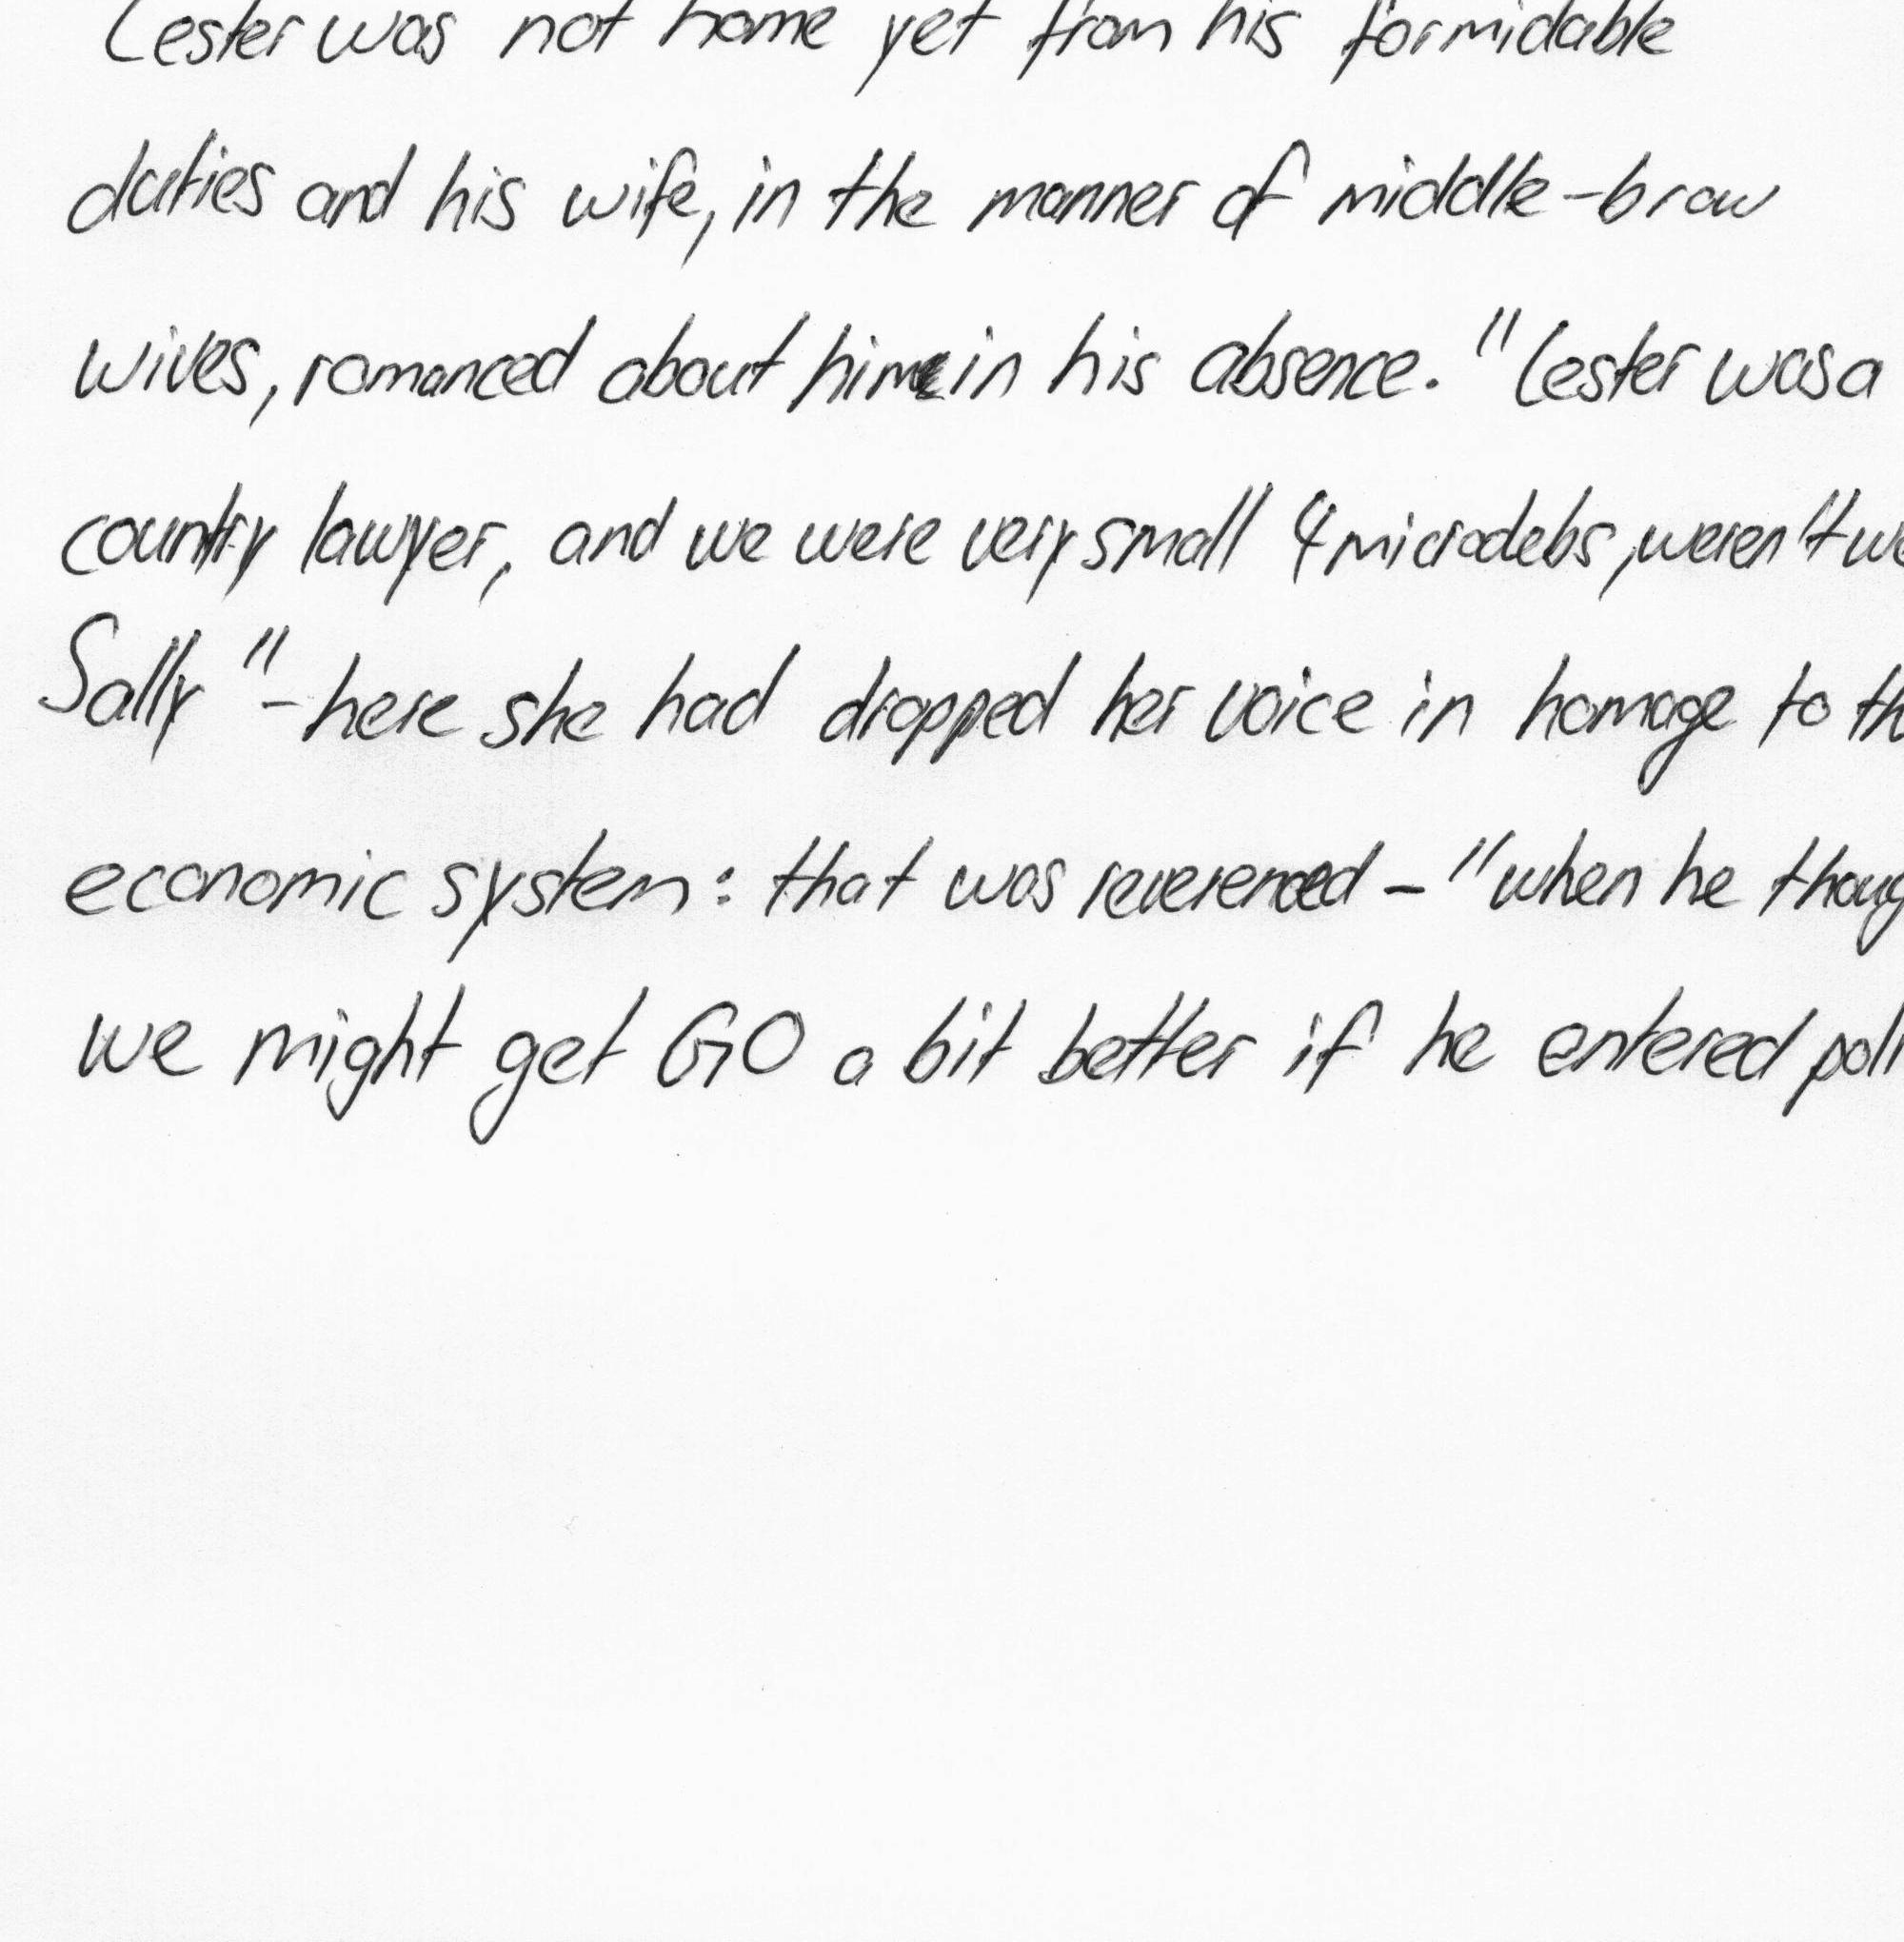 Lester was not home yet from his formidable
duties and his wife, in the manner of middle-brow
wives, romanced about him in his absence. "Lester was a
country lawyer, and we were very small 4 microdebs, weren't we
Sally"-here she had dropped her voice in homage to th
economic system: that was reverenced - "when he thoug
we might get GO a bit better if he entered poli